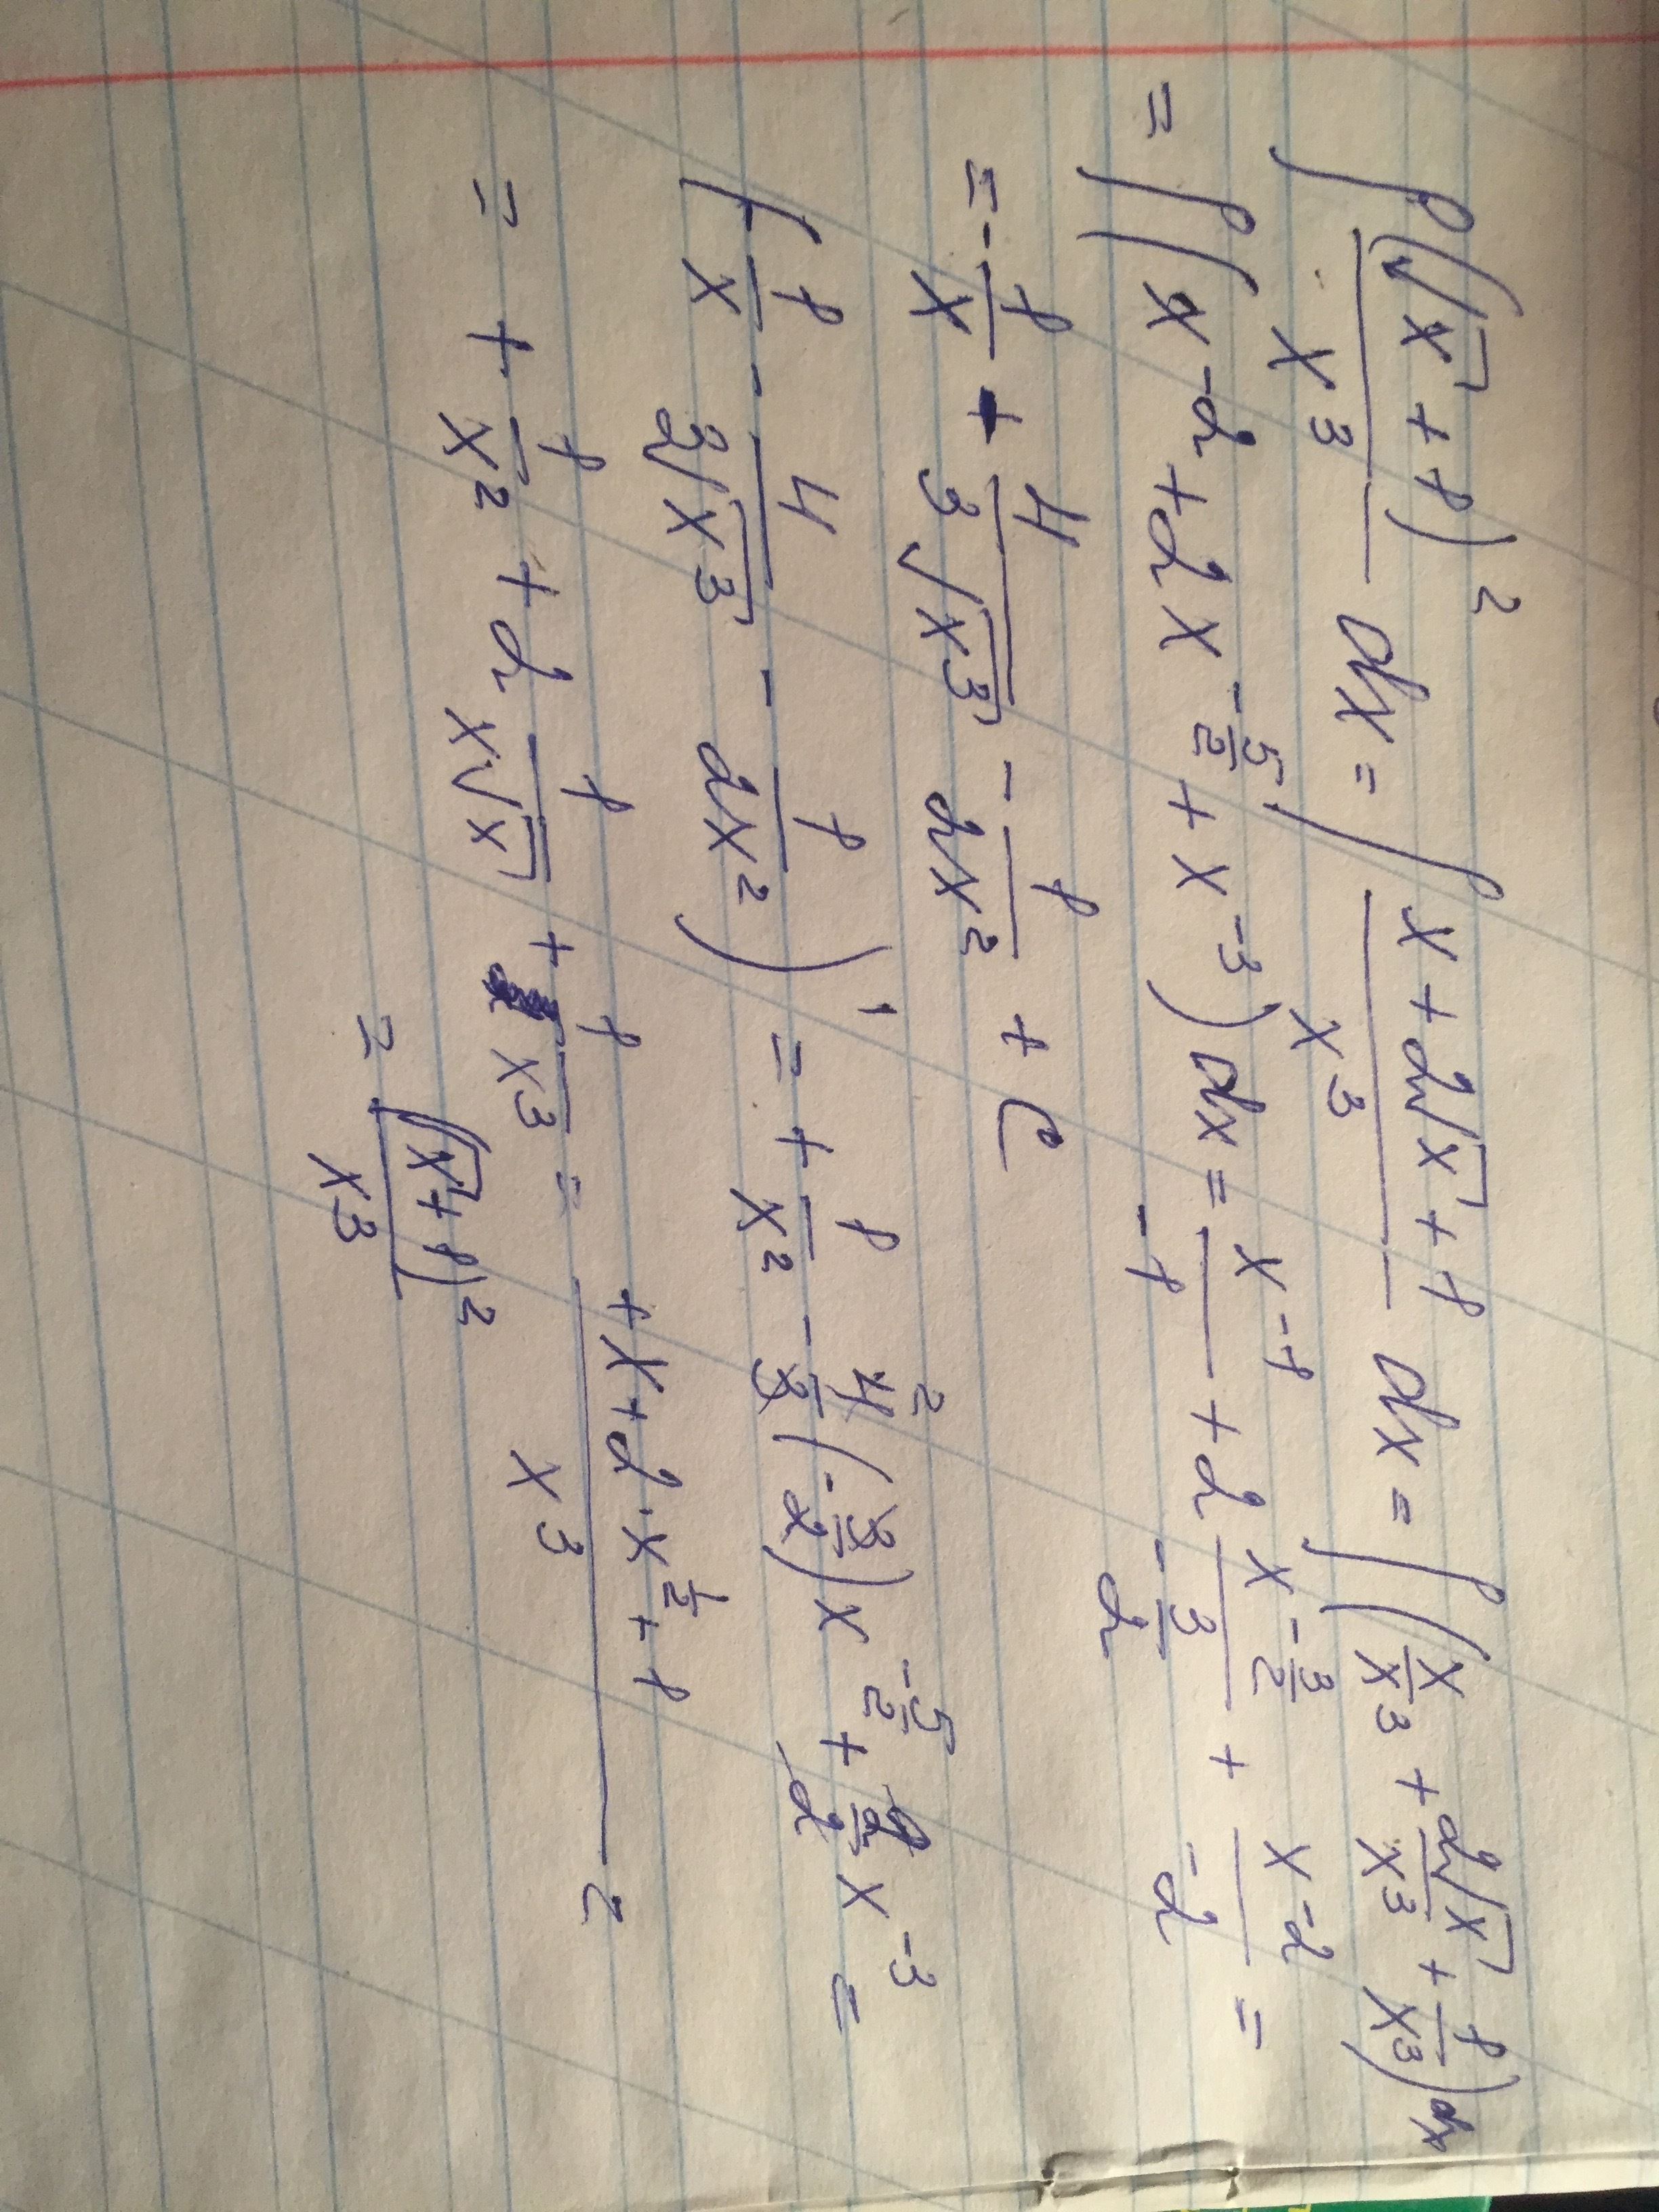 ∫ (√x + 1)² / x³ dx = ∫ (x + 2√x + 1) / x³ dx = ∫ (x/x³ + 2√x/x³ + 1/x³) dx
= ∫ (x⁻² + 2x^(-5/2) + x⁻³) dx = x⁻¹/-1 + 2 x^(-3/2)/(-3/2) + x⁻²/-2 =
= -1/x + 4/(3√x³) - 1/(2x²) + C
(-1/x - 4/(3√x³) - 1/(2x²))' = + 1/x² - 4/3 (-3/2) x^(-5/2) + 2/2 x⁻³ =
= + 1/x² + 2 1/(x√x) + 1/x³ = (+x + 2·x^(1/2) + 1) / x³ =
= (√x + 1)² / x³